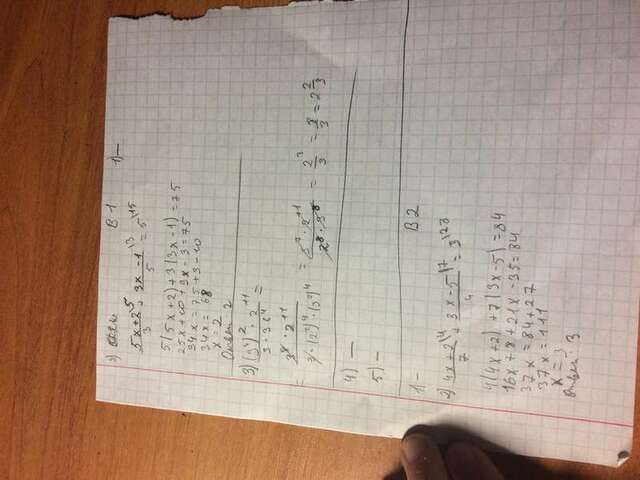 В 1
1) —
2)
(5x+2)/3 \5 + (3x-1)/5 \3 = 5 \15
5(5x+2)+3(3x-1)=75
25x+10+9x-3=75
34x = 75+3-10
34x = 68
x = 2
Ответ 2
3) ((3^4)^2 · 2^11)/(3 · 36^4) =
= (3^8 · 2^11)/(3 · (2^2)^4 · (3^2)^4) = = 2^3/3 = 8/3 = 2 2/3
4) —
5) —
В 2
1) -
2) (4x+2)/7 \4 + (3x-5)/4 \7 = 3 \28
4(4x+2) + 7(3x-5) = 84
16x + 8 + 21x - 35 = 84
37x = 84 + 27
37x = 111
x = 3
Ответ 3